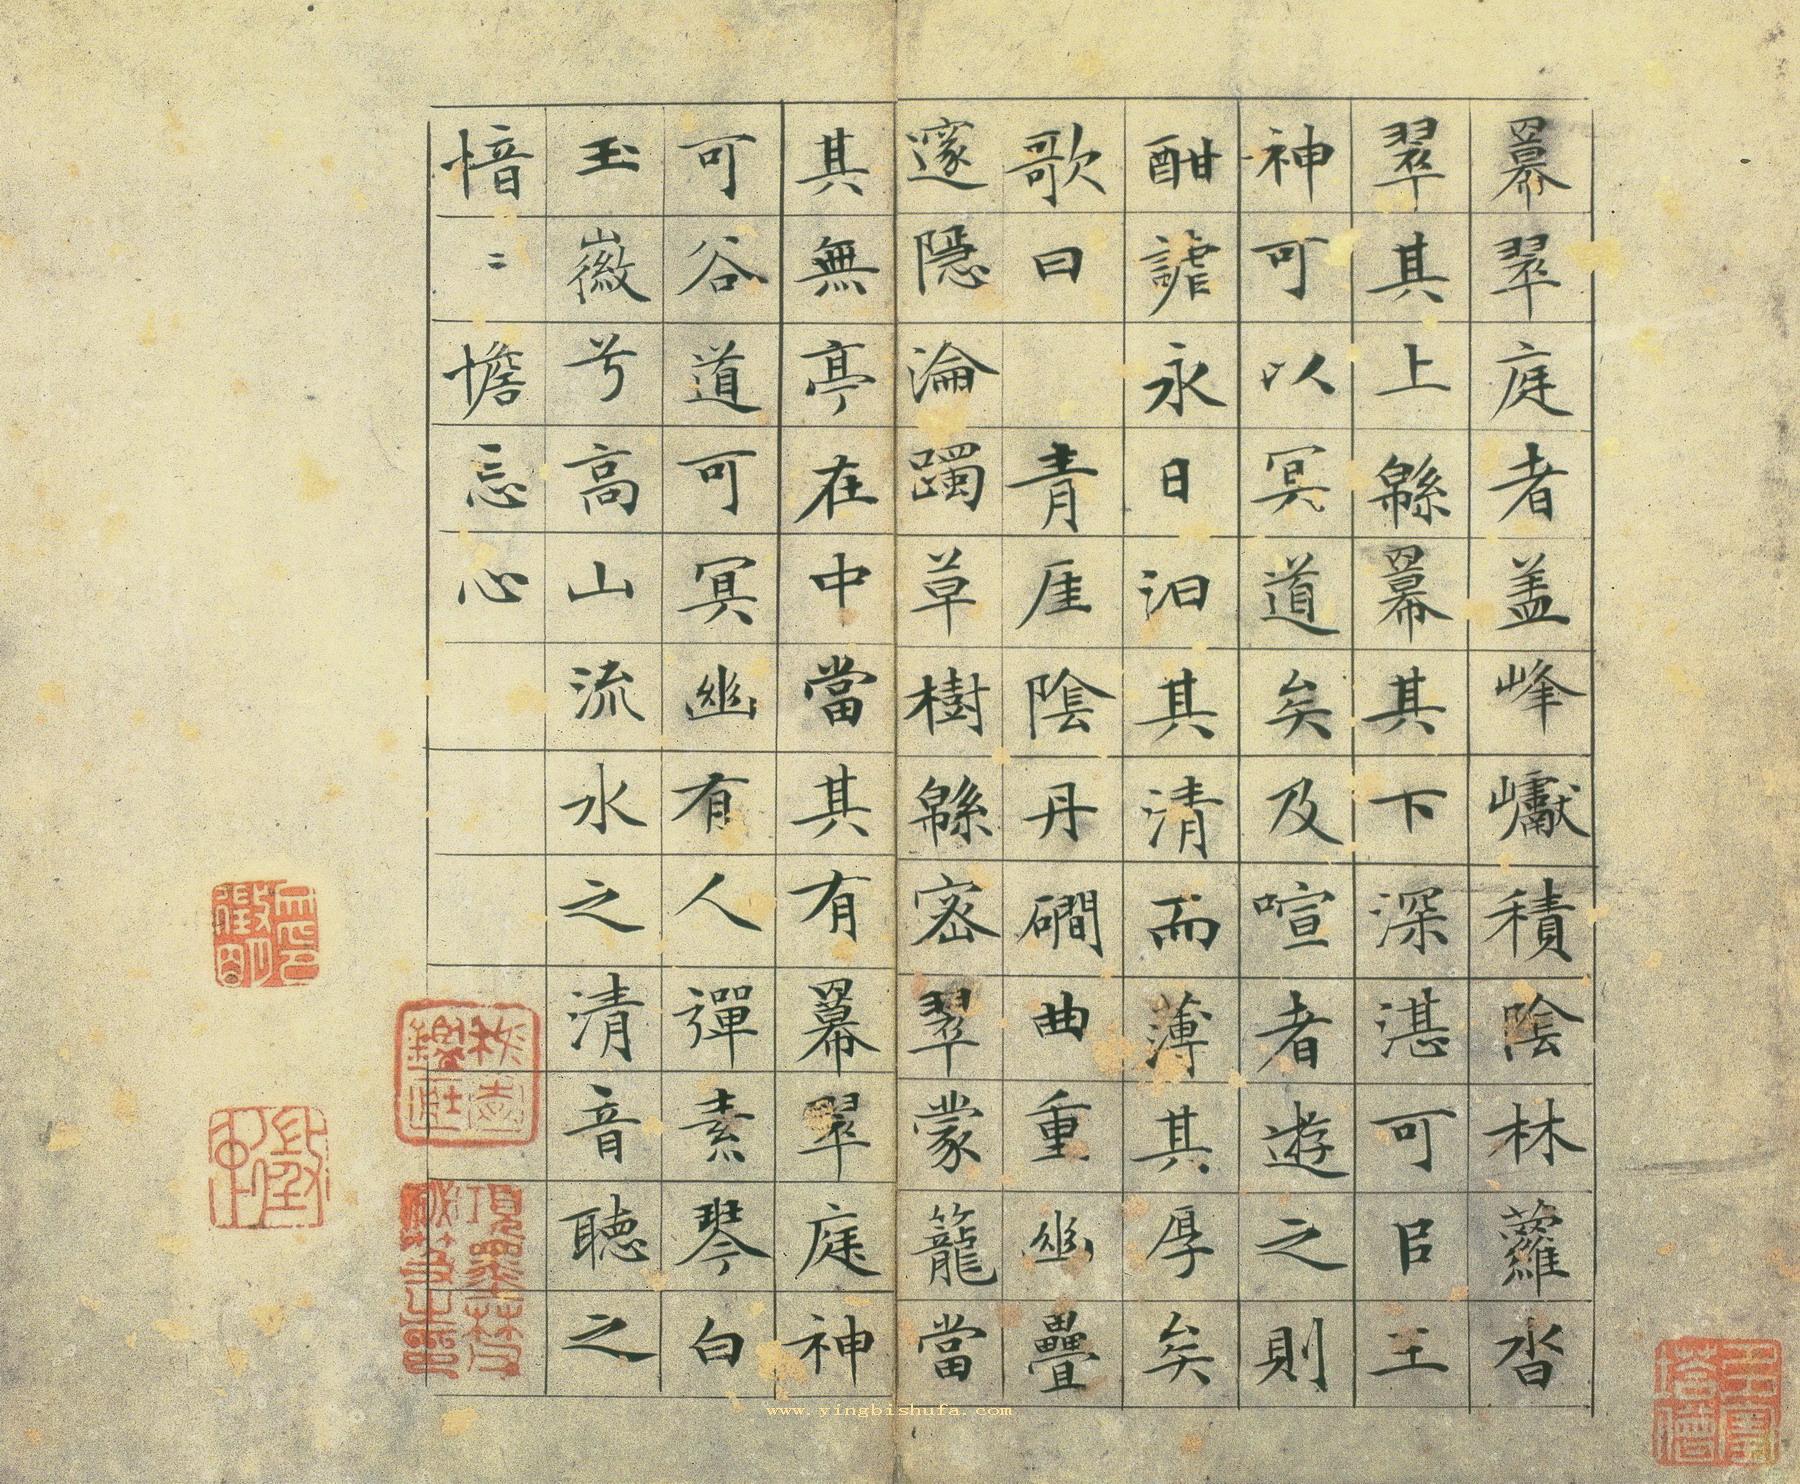 羃翠庭者蓋峰巘積陰林蘿沓
翠其上緜羃其下深湛可㠯王
神可以冥道矣及喧者遊之則
酣謔永日汩其清而薄其厚矣
歌曰 青厓陰丹磵曲重幽疊
邃隱淪躅草樹緜密翠蒙籠當
其無亭在中當其有羃翠庭神
可谷道可冥幽有人彈素琴白
玉徽兮高山流水之清音聽之
愔〻憺忘心
文徵明印
項墨林父祕笈之印
www.yingbishufa.com